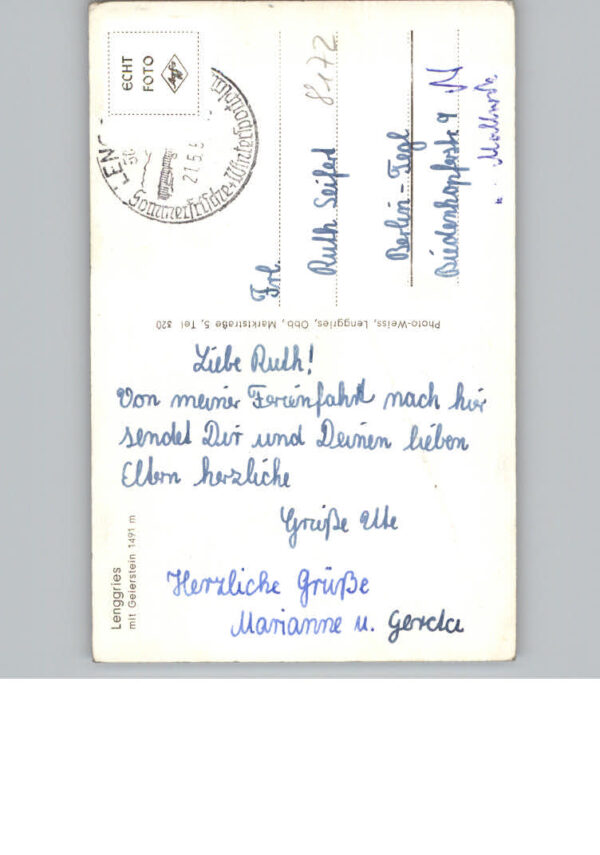 ECHT
FOTO
Agfa
LENG
21.5.5
Sommerfrische + Wintersportplatz
8172
Frl.
Ruth Seifert
Berlin-Tegl
Biedenkopferstr 9
Photo-Weiss, Lenggries, Obb., Marktstraße 5, Tel 320
Liebe Ruth!
Von meiner Ferienfahrt nach hier
sendet Dir und Deinen lieben
Eltern herzliche
Grüße Ute
Herzliche Grüße
Marianne u. Gerda
Lenggries
mit Geierstein 1491 m